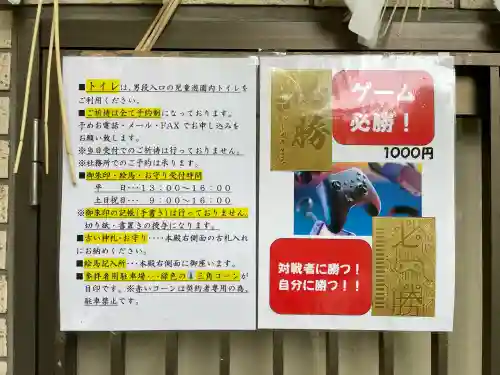 ■トイレは、男段入口の児童遊園内トイレを
ご利用ください。
■ご祈祷は全て予約制になっております。
予めお電話・メール・FAXでお申し込みを
お願い致します。
※当日受付でのご祈祷は行っておりません。
※社務所でのご予約は承ります。
■御朱印・絵馬・お守り受付時間
平　日・・・13：00～16：00
土日祝・・・9：00～16：00
※御朱印の記帳(手書き)は行っておりません。
切り紙・書置きの頒布になります。
■古い神札・お守り・・・・本殿右側面の古札入れ
にお納めください。
■絵馬記入所・・・本殿右側面に御座います。
■参拝者用駐車場・・・緑色の三角コーンが
目印です。※赤いコーンは契約者専用の為、
駐車禁止です。
ゲーム
必勝！
1000円
勝
対戦者に勝つ！
自分に勝つ！！
必勝